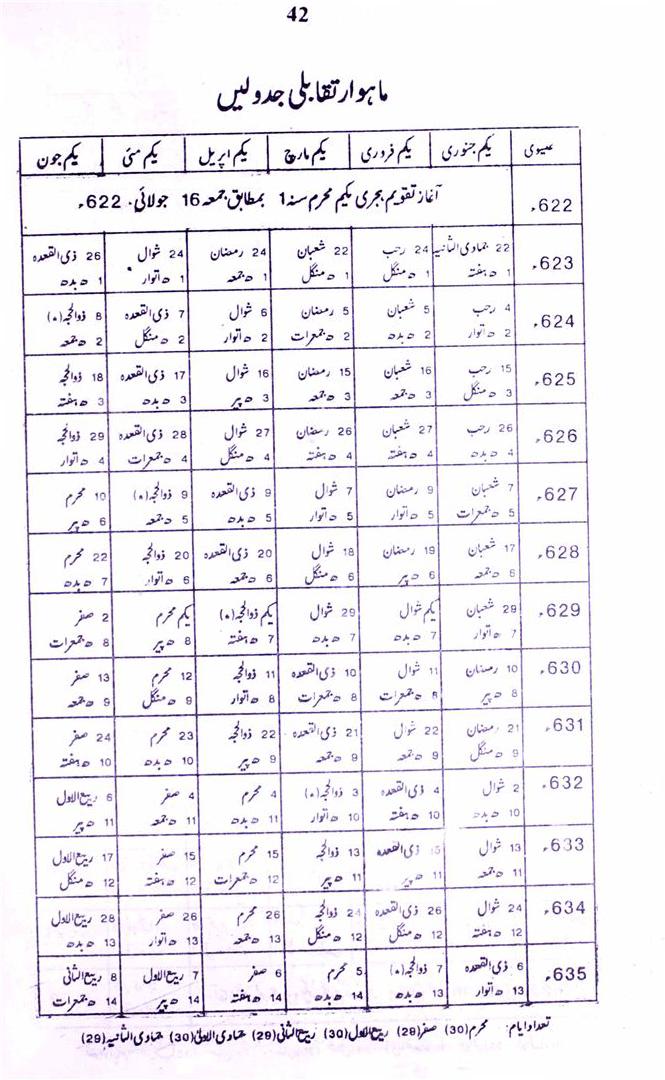 42
ماہوار تقابلی جدولیں
عیسوی یکم جنوری یکم فروری یکم مارچ یکم اپریل یکم مئی یکم جون
622ء آغاز تقویم ہجری یکم محرم سنہ 1 بمطابق جمعہ 16 جولائی 622ء
623ء 22 جمادی الثانیہ 24 رجب 22 شعبان 24 رمضان 24 شوال 26 ذی القعدہ
1 ھ ہفتہ 1 ھ منگل 1 ھ منگل 1 ھ جمعہ 1 ھ اتوار 1 ھ بدھ
624ء 4 رجب 5 شعبان 5 رمضان 6 شوال 7 ذی القعدہ 8 ذوالحجہ (*)
2 ھ اتوار 2 ھ بدھ 2 ھ جمعرات 2 ھ اتوار 2 ھ منگل 2 ھ جمعہ
625ء 15 رجب 16 شعبان 15 رمضان 16 شوال 17 ذی القعدہ 18 ذوالحجہ
3 ھ منگل 3 ھ جمعہ 3 ھ جمعہ 3 ھ پیر 3 ھ بدھ 3 ھ ہفتہ
626ء 26 رجب 27 شعبان 26 رمضان 27 شوال 28 ذی القعدہ 29 ذوالحجہ
4 ھ بدھ 4 ھ ہفتہ 4 ھ ہفتہ 4 ھ منگل 4 ھ جمعرات 4 ھ اتوار
627ء 7 شعبان 9 رمضان 7 شوال 9 ذی القعدہ 9 ذوالحجہ (*) 10 محرم
5 ھ جمعرات 5 ھ اتوار 5 ھ اتوار 5 ھ بدھ 5 ھ جمعہ 6 ھ پیر
628ء 17 شعبان 19 رمضان 18 شوال 20 ذی القعدہ 20 ذوالحجہ 22 محرم
6 ھ جمعہ 6 ھ پیر 6 ھ منگل 6 ھ جمعہ 6 ھ اتوار 7 ھ بدھ
629ء 29 شعبان یکم شوال 29 شوال یکم ذوالحجہ (*) یکم محرم 2 صفر
7 ھ اتوار 7 ھ بدھ 7 ھ بدھ 7 ھ ہفتہ 8 ھ پیر 8 ھ جمعرات
630ء 10 رمضان 11 شوال 10 ذی القعدہ 11 ذوالحجہ 12 محرم 13 صفر
8 ھ پیر 8 ھ جمعرات 8 ھ جمعرات 8 ھ اتوار 9 ھ منگل 9 ھ جمعہ
631ء 21 رمضان 22 شوال 21 ذی القعدہ 22 ذوالحجہ 23 محرم 24 صفر
9 ھ منگل 9 ھ جمعہ 9 ھ جمعہ 9 ھ پیر 10 ھ بدھ 10 ھ ہفتہ
632ء 2 شوال 4 ذی القعدہ 3 ذوالحجہ (*) 4 محرم 4 صفر 6 ربیع الاول
10 ھ بدھ 10 ھ ہفتہ 10 ھ اتوار 11 ھ بدھ 11 ھ جمعہ 11 ھ پیر
633ء 13 شوال 15 ذی القعدہ 13 ذوالحجہ 15 محرم 15 صفر 17 ربیع الاول
11 ھ جمعہ 11 ھ پیر 11 ھ پیر 12 ھ جمعرات 12 ھ ہفتہ 12 ھ منگل
634ء 24 شوال 26 ذی القعدہ 24 ذوالحجہ 26 محرم 26 صفر 28 ربیع الاول
12 ھ ہفتہ 12 ھ منگل 12 ھ منگل 13 ھ جمعہ 13 ھ اتوار 13 ھ بدھ
635ء 6 ذی القعدہ 7 ذوالحجہ (*) 5 محرم 6 صفر 7 ربیع الاول 8 ربیع الثانی
13 ھ اتوار 13 ھ بدھ 14 ھ بدھ 14 ھ ہفتہ 14 ھ پیر 14 ھ جمعرات
تعداد ایام: محرم (30) صفر (29) ربیع الاول (30) ربیع الثانی (29) جمادی الاولیٰ (30) جمادی الثانیہ (29)